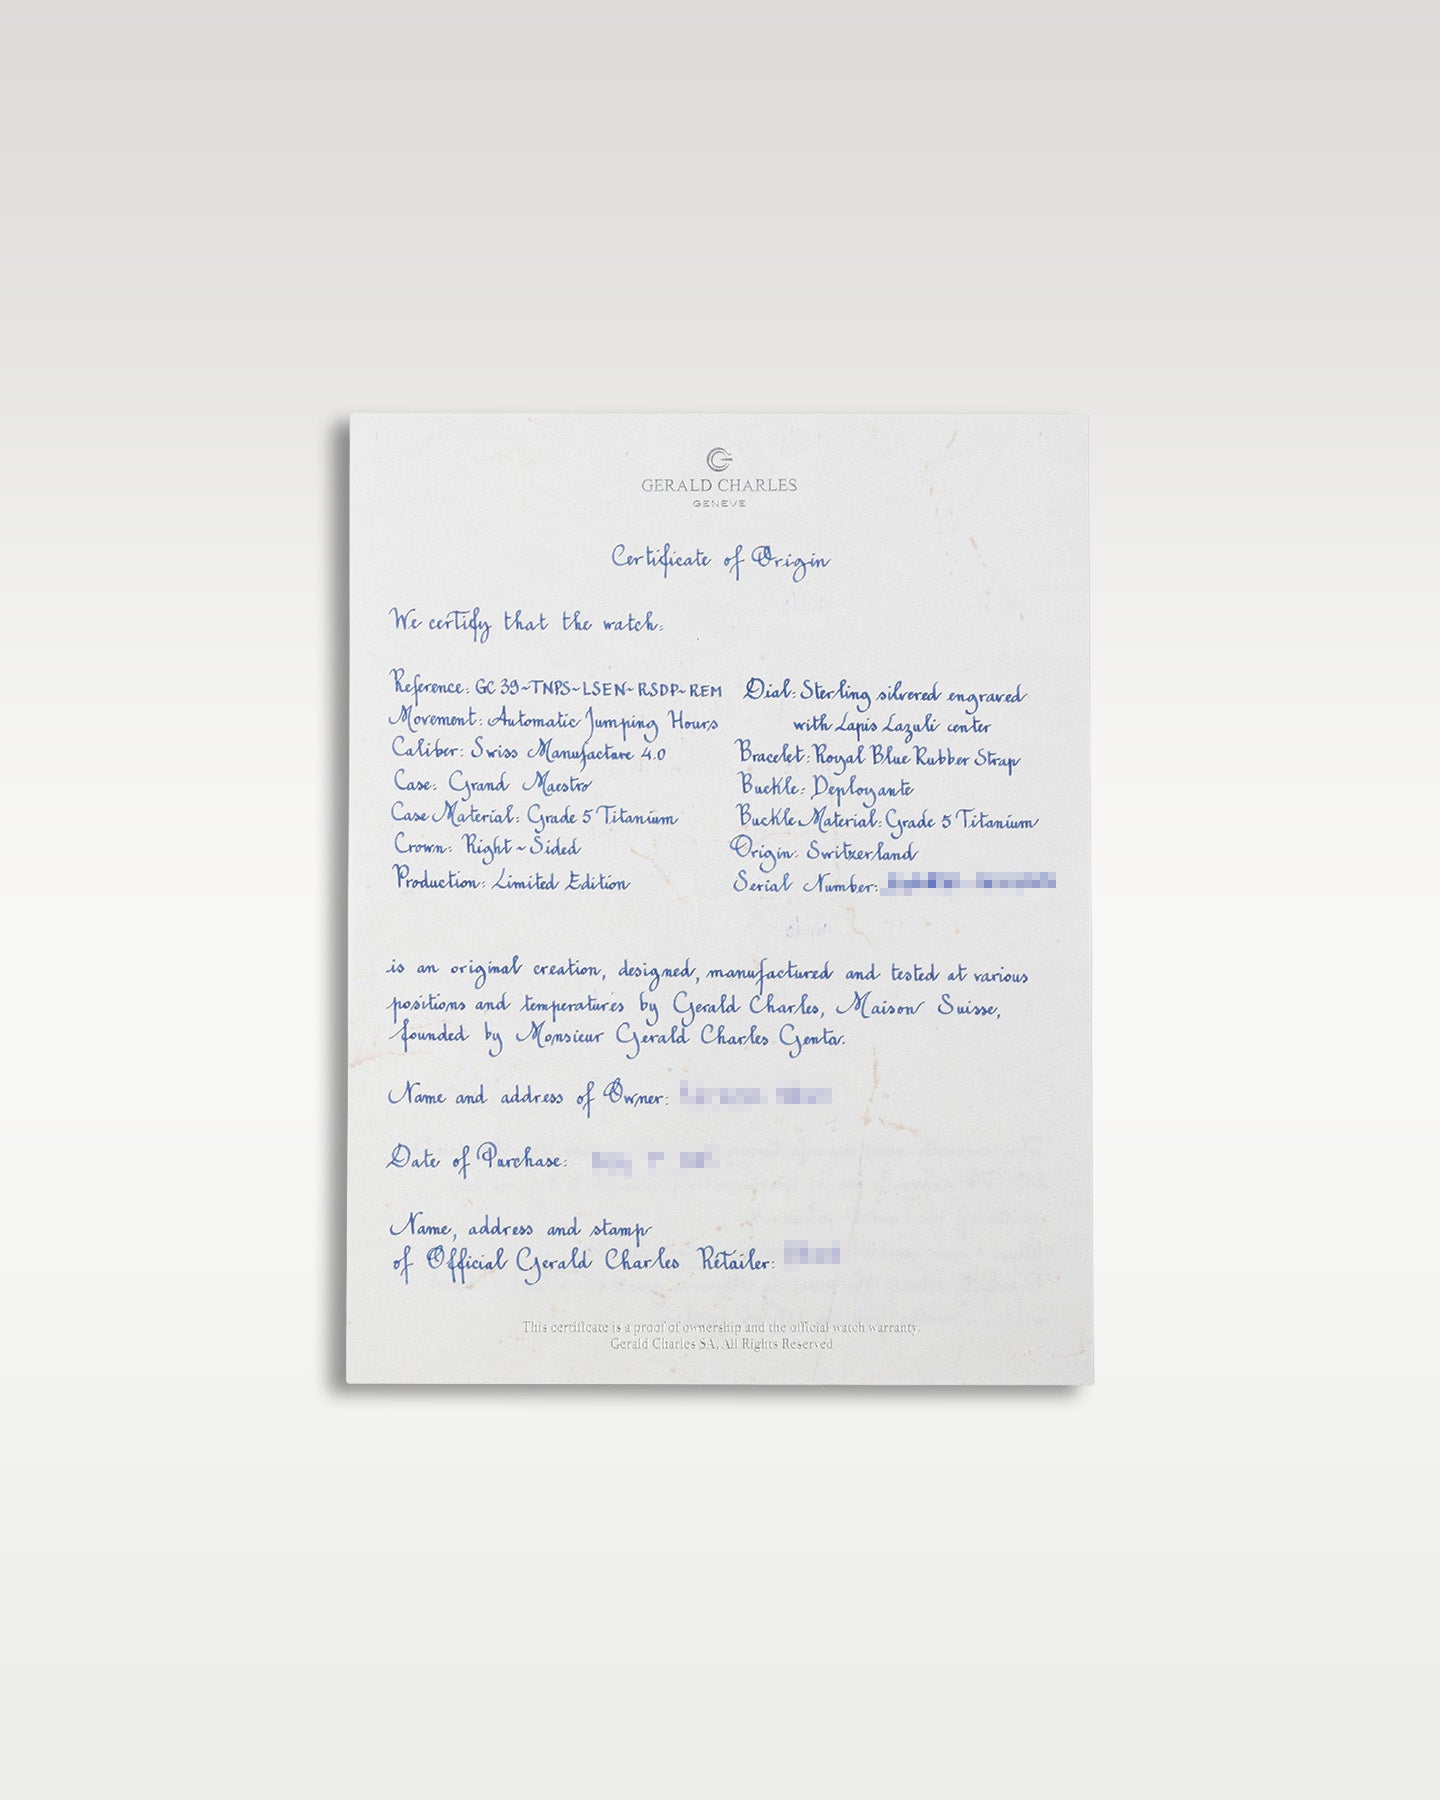 GERALD CHARLES
GENÈVE
Certificate of Origin
We certify that the watch:
Reference: GC39-TNPS-LSEN-RSDP-REM
Movement: Automatic Jumping Hours
Caliber: Swiss Manufacture 4.0
Case: Grand Maestro
Case Material: Grade 5 Titanium
Crown: Right-Sided
Production: Limited Edition
Dial: Sterling silvered engraved
with Lapis Lazuli center
Bracelet: Royal Blue Rubber Strap
Buckle: Deployante
Buckle Material: Grade 5 Titanium
Origin: Switzerland
Serial Number:
is an original creation, designed, manufactured and tested at various
positions and temperatures by Gerald Charles, Maison Suisse,
founded by Monsieur Gerald Charles Genta.
Name and address of Owner:
Date of Purchase:
Name, address and stamp
of Official Gerald Charles Retailer:
This certificate is a proof of ownership and the official watch warranty.
Gerald Charles SA, All Rights Reserved